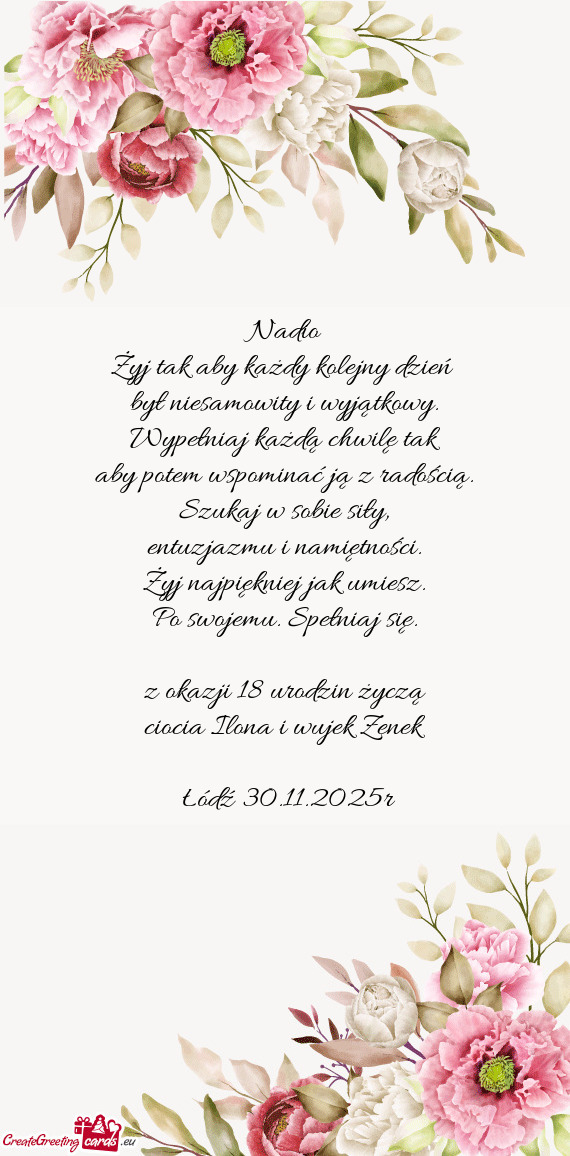 Nadio
Żyj tak aby każdy kolejny dzień
był niesamowity i wyjątkowy.
Wypełniaj każdą chwilę tak
aby potem wspominać ją z radością.
Szukaj w sobie siły,
entuzjazmu i namiętności.
Żyj najpiękniej jak umiesz.
Po swojemu. Spełniaj się.
z okazji 18 urodzin życzą
ciocia Ilona i wujek Zenek
Łódź 30.11.2025r
CreateGreeting cards .eu